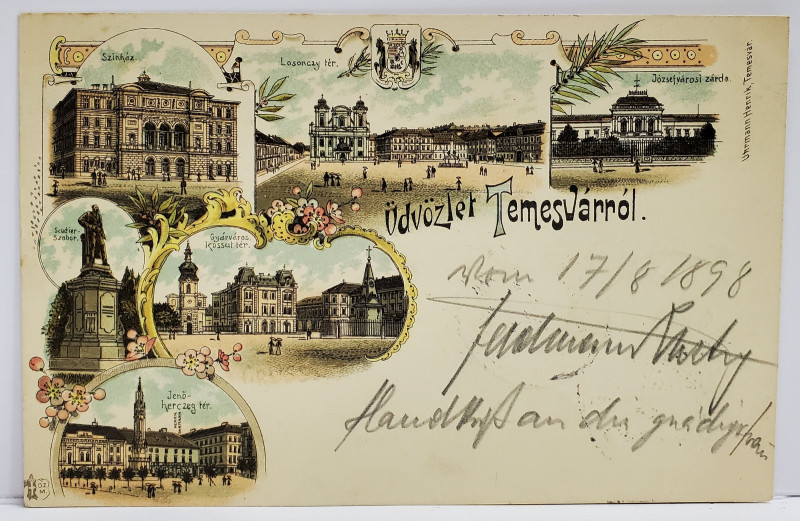 Szinház.
Losonczy tér.
Józsefvárosi zárda.
Uhrmann Henrik, Temesvár.
Üdvözlet Temesvárról.
Scudier-
Szobor.
Gyárváros.
Kossut tér.
Jenő-
herczeg tér.
vom 17/8 1898
Feldmann
Handkuß an die gnädige Frau